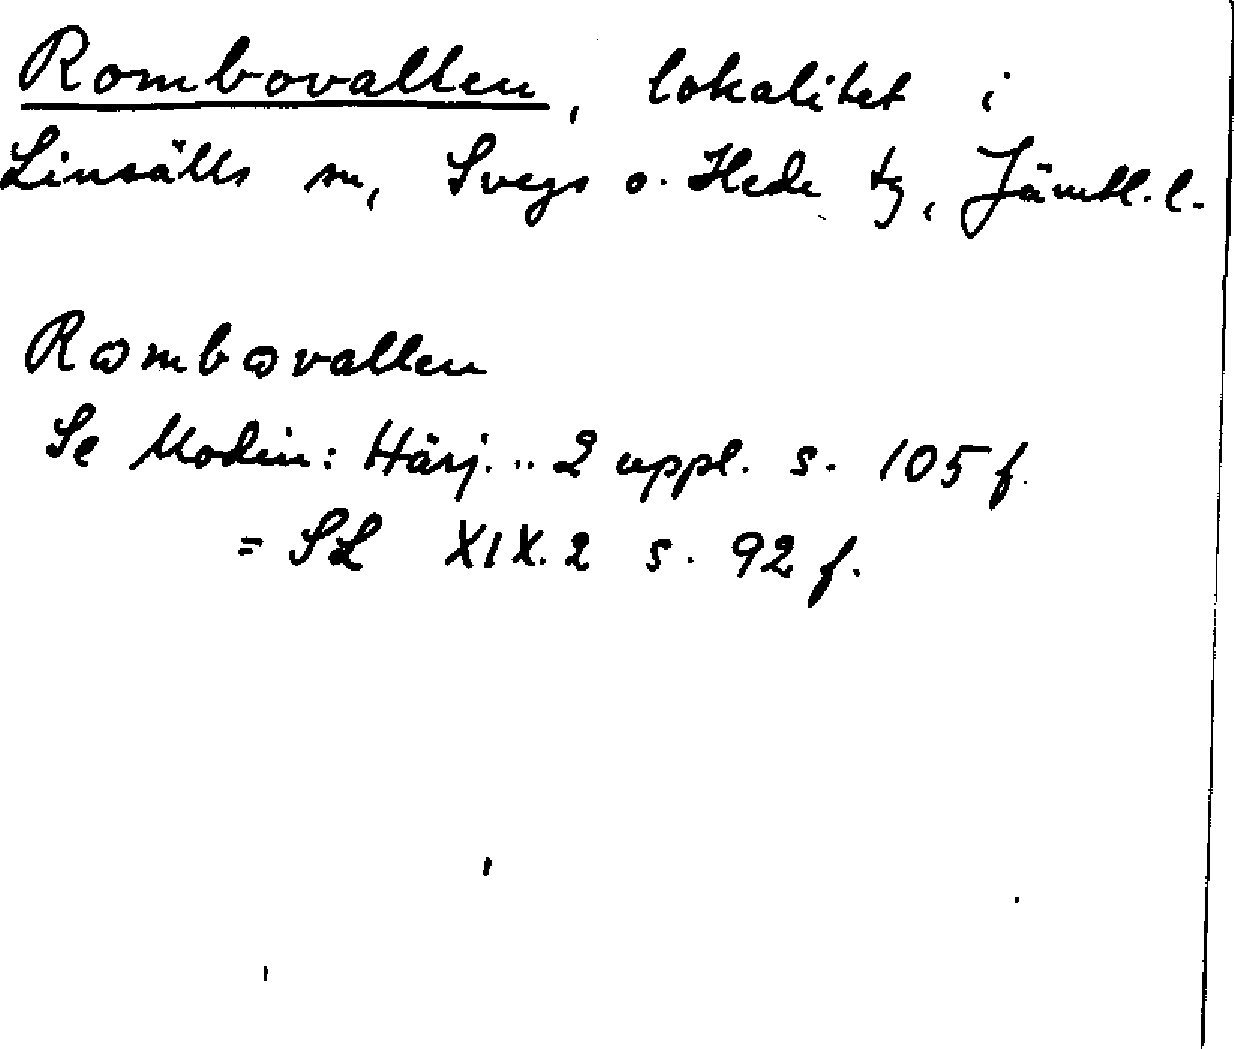 Rombovallen, lokalitet i
Linsälls sn, Svegs o. Hede tg, Jämtl. l.
Rωmbωvallen
Se Modin: Härj... 2 uppl. s. 105 f.
= SL XIX.2 s. 92 f.